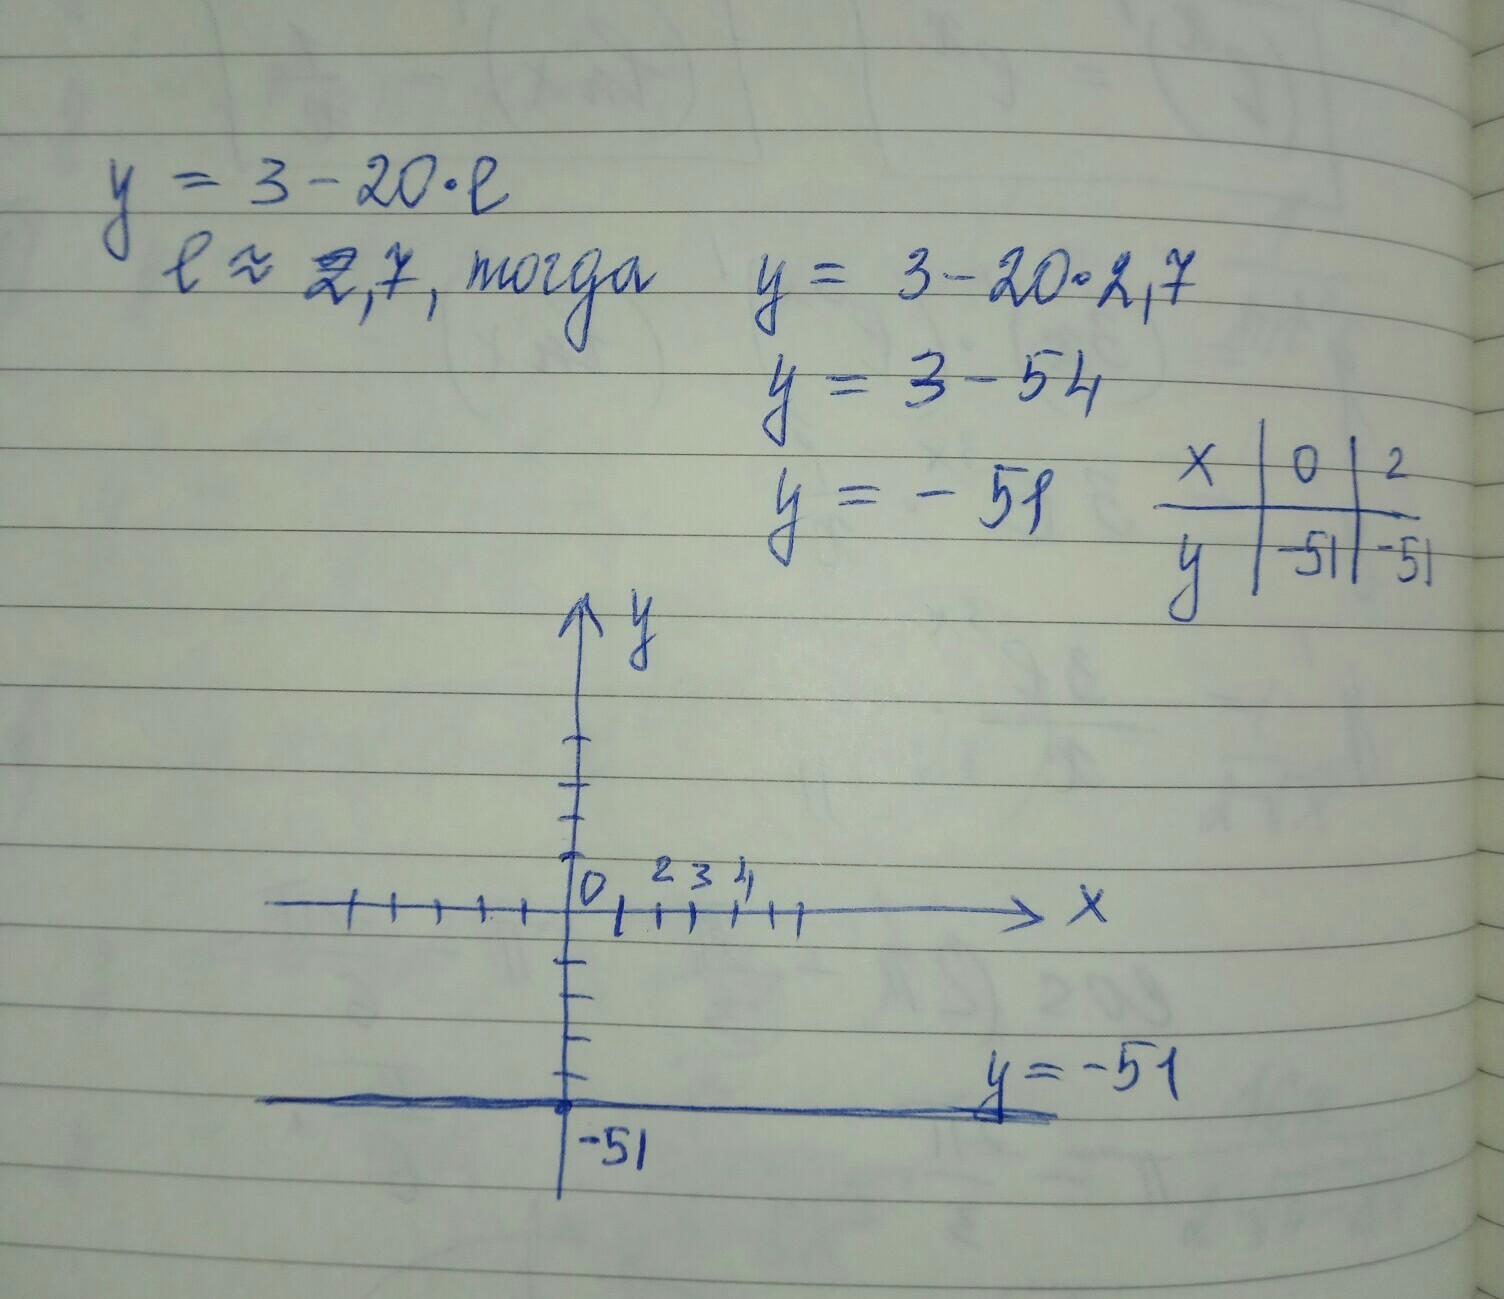 y = 3 - 20·e
e ≈ 2,7, тогда y = 3 - 20·2,7
y = 3 - 54
y = - 51
x 0 2
y -51 -51
y
0 2 3 4
x
y = -51
-51